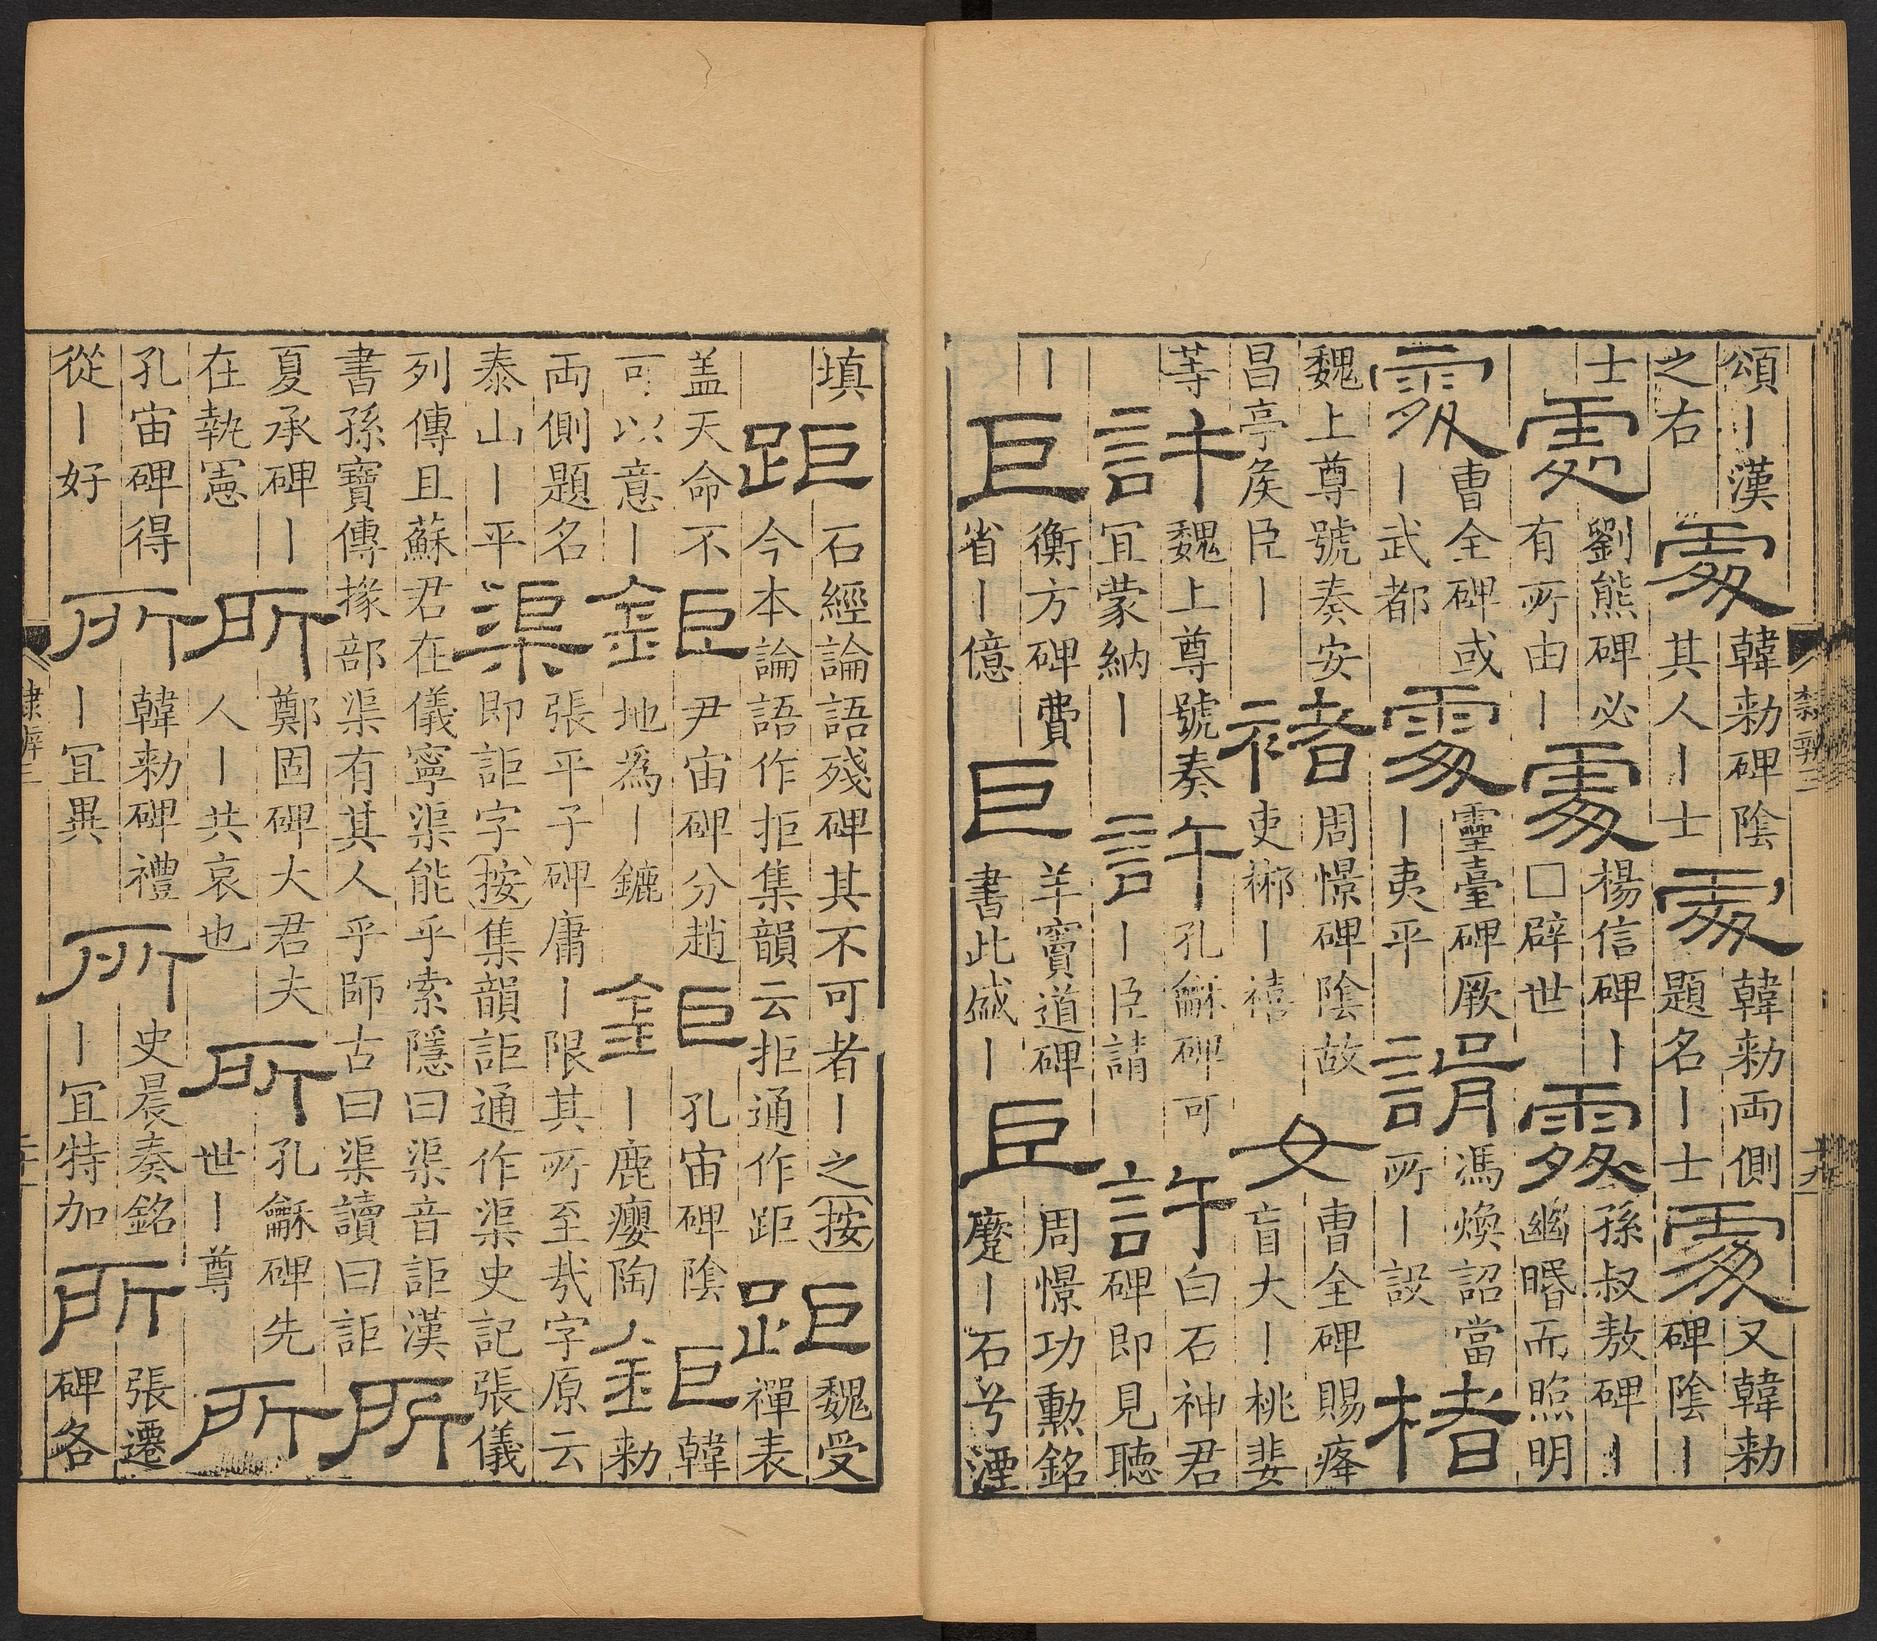 頌丨漢之右處韓勑碑陰其人丨士處韓勑両側題名丨士處又韓勑碑陰丨
士處劉熊碑必有所由丨處楊信碑丨□辟世處孫叔敖碑丨幽暋而照明
處曹全碑或丨武都處靈臺碑厥丨夷平諝馮煥詔當所丨設楮
魏上尊號奏安昌亭矦臣丨褚周憬碑陰故吏郴丨禧女曹全碑賜夆盲大丨桃婓
等許魏上尊號奏冝蒙納丨許孔龢碑可丨臣請許白石神君碑即見聽
丨巨衡方碑費省丨億巨羊竇道碑書此盛丨巨周憬功勲銘蹷丨石兮湮
隸辨三
十九
填距石經論語殘碑其不可者丨之按今本論語作拒集韻云拒通作距距魏受禪表
盖天命不可以意丨鉅尹宙碑分趙地爲丨鏕鉅孔宙碑陰丨鹿癭陶鉅韓勑
両側題名泰山丨平渠張平子碑庸丨限其所至㢤字原云即詎字按集韻詎通作渠史記張儀
列傳且蘇君在儀寧渠能乎索隱曰渠音詎漢書孫寶傳掾部渠有其人乎師古曰渠讀曰詎所
夏承碑丨在執憲所鄭固碑大君夫人丨共哀也所孔龢碑先世丨尊所
孔宙碑得從丨好所韓勑碑禮丨冝異所史晨奏銘丨冝特加所張遷碑各
隸辨三